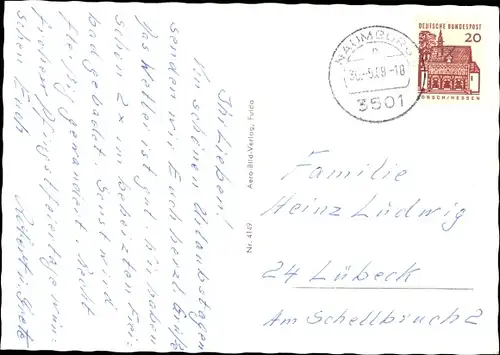 Ihr Lieben!
Von schönen Urlaubstagen
senden wir Euch herzl. Grüße
Das Wetter ist gut. Wir haben
schon 2x im beheizten Frei-
bad gebadet. Sonst wird
fleißig gewandert. Recht
frohe Pfingstfeiertage wün-
schen Euch
Aero-Bild-Verlag, Fulda
Nr. 4149
NAUMBURG
3501
DEUTSCHE BUNDESPOST
20
LORSCH/HESSEN
Familie
Heinz Ludwig
24 Lübeck
Am Schellbruch 2